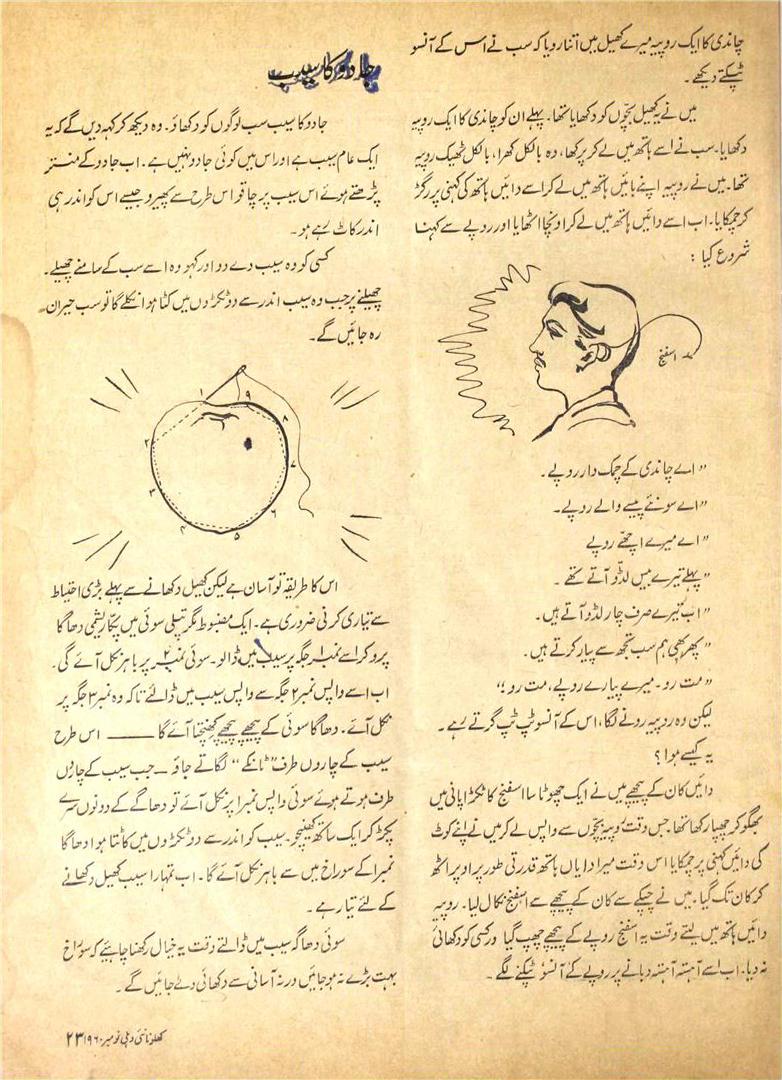 چاندی کا ایک روپیہ میرے کھیل میں اتنا رویا کہ سب نے اس کے آنسو
ٹپکتے دیکھے۔
میں نے یہ کھیل بچّوں کو دکھایا تھا۔ پہلے ان کو چاندی کا ایک روپیہ
دکھایا۔ سب نے اسے ہاتھ میں لے کر پرکھا، وہ بالکل کھرا، بالکل ٹھیک روپیہ
تھا۔ میں نے روپیہ اپنے بائیں ہاتھ میں لے کر اسے دائیں ہاتھ کی کہنی پر رگڑ
کر چمکایا۔ اب اسے دائیں ہاتھ میں لے کر اونچا اٹھایا اور روپے سے کہنا
شروع کیا :
اسفنج
”اے چاندی کے چمک دار روپے۔
”اے سو نئے پیسے والے روپے۔
”اے میرے اچھّے روپے
”پہلے تیرے بیس لڈّو آتے تھے۔
”اب تیرے صرف چار لڈّو آتے ہیں۔
”پھر بھی ہم سب تجھ سے پیار کرتے ہیں۔
”مت رو۔ میرے پیارے روپے، مت رو“
لیکن وہ روپیہ رونے لگا، اس کے آنسو ٹپ ٹپ گرتے رہے۔
یہ کیسے ہوا ؟
دائیں کان کے پیچھے میں نے ایک چھوٹا سا اسفنج کا ٹکڑا پانی میں
بھگو کر چھپا رکھا تھا۔ جس وقت روپیہ بچّوں سے واپس لے کر میں نے اپنے کوٹ
کی دائیں کہنی پر چمکایا اس وقت میرا دایاں ہاتھ قدرتی طور پر اوپر اٹھ
کر کان تک گیا۔ میں نے چپکے سے کان کے پیچھے سے اسفنج نکال لیا۔ روپیہ
دائیں ہاتھ میں لیتے وقت یہ اسفنج روپے کے پیچھے چھپ گیا اور کسی کو دکھائی
نہ دیا۔ اب اسے آہستہ آہستہ دبانے پر روپے کے آنسو ٹپکنے لگے۔
جادو کا سیب
جادو کا سیب سب لوگوں کو دکھاؤ۔ وہ دیکھ کر کہہ دیں گے کہ یہ
ایک عام سیب ہے اور اس میں کوئی جادو نہیں ہے۔ اب جادو کے منتر
پڑھتے ہوئے اس سیب پر چاقو اس طرح سے پھیرو جیسے اس کو اندر ہی
اندر کاٹ رہے ہو۔
کسی کو وہ سیب دے دو اور کہو وہ اسے سب کے سامنے چھیلے۔
چھیلنے پر جب وہ سیب اندر سے دو ٹکڑوں میں کٹا ہوا نکلے گا تو سب حیران
رہ جائیں گے۔
۱
۲
۳
۴
۵
۶
۷
۸
۹
اس کا طریقہ تو آسان ہے لیکن کھیل دکھانے سے پہلے بڑی احتیاط
سے تیاری کرنی ضروری ہے۔ ایک مضبوط مگر پتلی سوئی میں پکّا ریشمی دھاگا
پرو کر اسے نمبر۱ جگہ پر سیب میں ڈالو۔ سوئی نمبر۲ پر باہر نکل آئے گی۔
اب اسے واپس نمبر۲ جگہ سے واپس سیب میں ڈالئے تاکہ وہ نمبر۳ جگہ پر
نکل آئے۔ دھاگا سوئی کے پیچھے پیچھے کھنچتا آئے گا ــــــ اس طرح
سیب کے چاروں طرف ”ٹانکے“ لگاتے جاؤ ــ جب سیب کے چاروں
طرف ہوتے ہوئے سوئی واپس نمبر۱ پر نکل آئے تو دھاگے کے دونوں سرے
پکڑ کر ایک ساتھ کھینچو۔ سیب کو اندر سے دو ٹکڑوں میں کاٹتا ہوا دھاگا
نمبر۱ کے سوراخ میں سے باہر نکل آئے گا۔ اب تمہارا سیب کھیل دکھانے
کے لئے تیار ہے۔
سوئی دھاگہ سیب میں ڈالتے وقت یہ خیال رکھنا چاہئیے کہ سوراخ
بہت بڑے نہ ہو جائیں ورنہ آسانی سے دکھائی دے جائیں گے۔
کھلونا نئی دہلی نومبر ۱۹۶۰ ۲۳